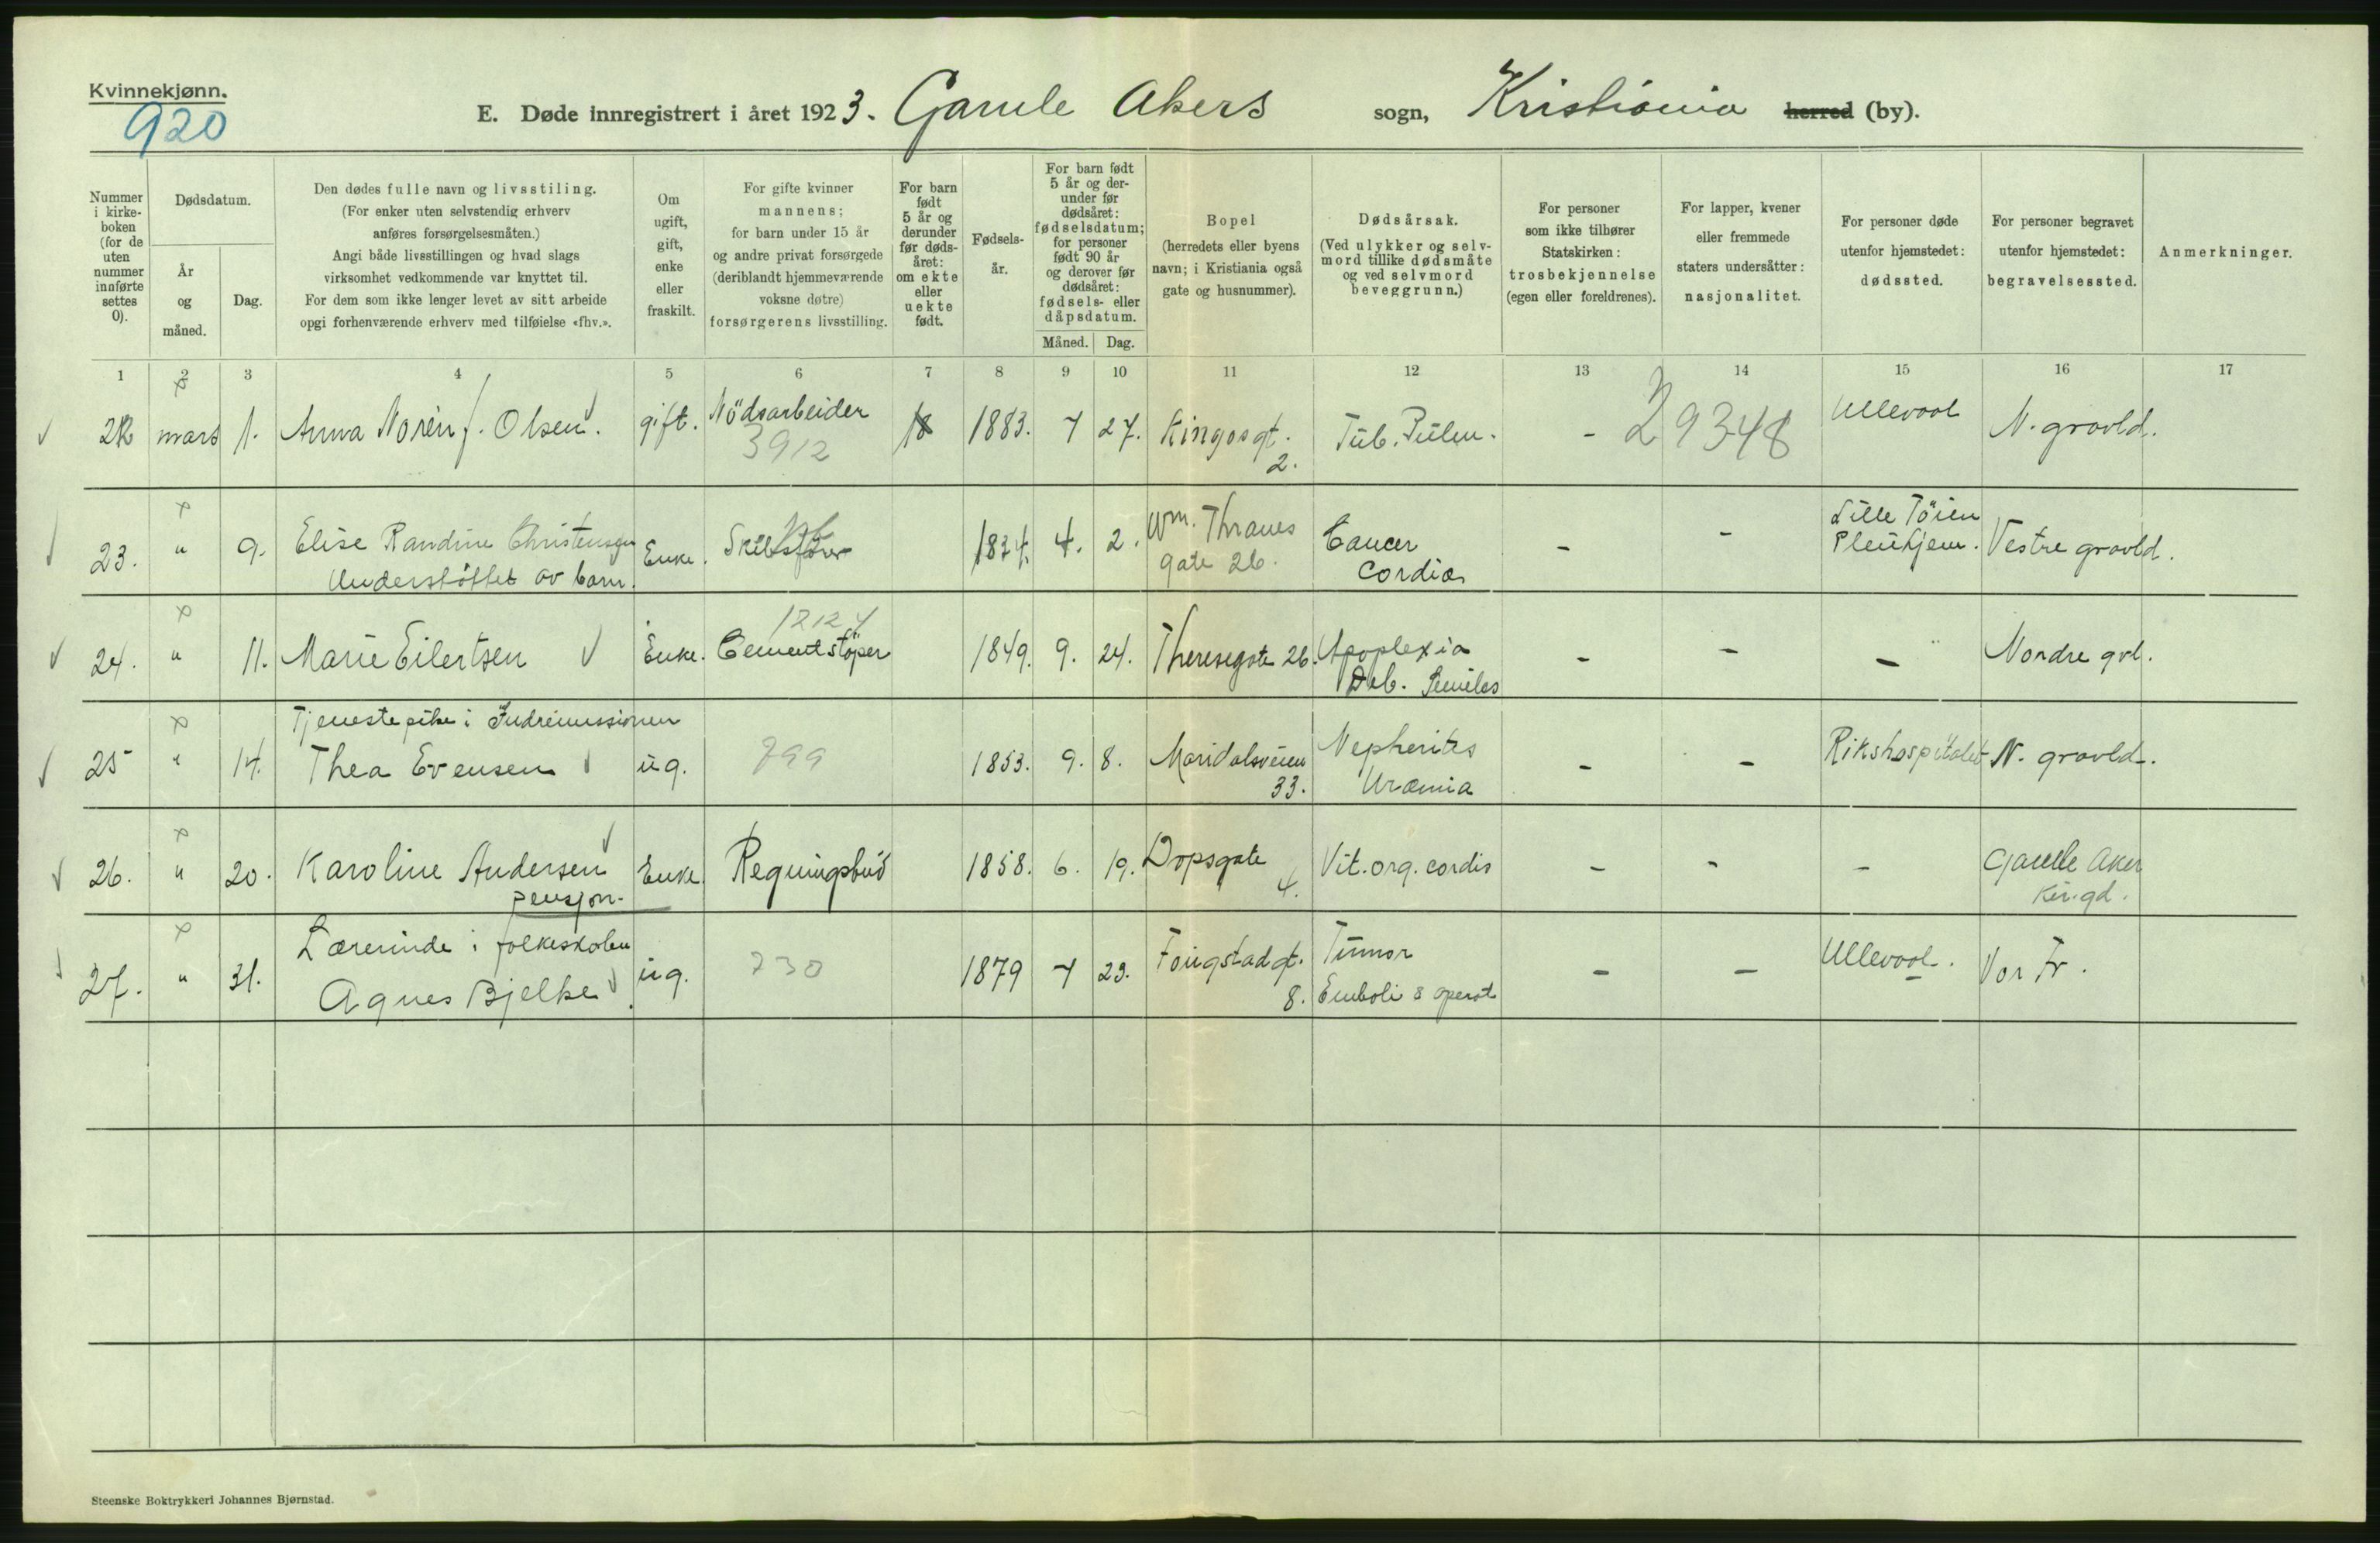 Kvinnekjønn.
920
E. Døde innregistrert i året 1923. Gamle Akers sogn, Kristiania herred (by).
Nummer i kirke-boken (for de uten nummer innførte settes 0).
Dødsdatum.
År og måned.
Dag.
Den dødes fulle navn og livsstiling.
(For enker uten selvstendig erhverv
anføres forsørgelsesmåten.)
Angi både livsstillingen og hvad slags
virksomhet vedkommende var knyttet til.
For dem som ikke lenger levet av sitt arbeide
opgi forhenværende erhverv med tilføielse «fhv.».
Om ugift, gift, enke eller fraskilt.
For gifte kvinner
mannens;
for barn under 15 år
og andre privat forsørgede
(deriblandt hjemmeværende
voksne døtre)
forsørgerens livsstilling.
For barn født 5 år og derunder før døds-året: om ekte eller uekte født.
Fødsels-år.
For barn født 5 år og der-under før dødsåret: fødselsdatum; for personer født 90 år og derover før dødsåret: fødsels- eller dåpsdatum.
Måned. Dag.
Bopel
(herredets eller byens
navn; i Kristiania også
gate og husnummer).
Dødsårsak.
(Ved ulykker og selv-
mord tillike dødsmåte
og ved selvmord
beveggrunn.)
For personer
som ikke tilhører
Statskirken:
trosbekjennelse
(egen eller foreldrenes).
For lapper, kvener
eller fremmede
staters undersåtter:
nasjonalitet.
For personer døde
utenfor hjemstedet:
dødssted.
For personer begravet
utenfor hjemstedet:
begravelsessted.
Anmerkninger.
1 2 3 4 5 6 7 8 9 10 11 12 13 14 15 16 17
22 mars 1. Anna Norèn f. Olsen. gift. Nödsarbeider 1883. 7 27. Kingosgt. 2. Tub. Pulm. - Ullevool N. gravld.
3912 18 29348
23. " 9. Elise Randine Christensen Enke. Skibsfører 1834. 4. 2. Wm. Thranes gate 26. Cancer Cordia - - Lille Töien Pleiehjem. Vestre gravld.
Understöttet av barn.
24. " 11. Marie Eilertsen Enke. Cementstöper 1849. 9. 24. Theresegate 26. Apoplexia Deb. Senilis - - - Nordre gvl.
12124
Tjenestepike i Indremissionen
25 " 14. Thea Evensen ug. 799 1853. 9. 8. Maridalsveien 33. Nepherites Uræmia - - Rikshospitalet N. gravld.
26. " 20. Karoline Andersen Enke. Regningsbud 1858. 6. 19. Dopsgate 4. Vit. org. cordis - - - Gamle Aker Kir.gd.
pensjon.
Lærerinde i folkeskolen
27. " 31. Agnes Bjelke ug. 730 1879 7 23. Fougstadgt. 8. Tumor Emboli & operat - - Ullevool. Vor Fr.
Steenske Boktrykkeri Johannes Bjørnstad.